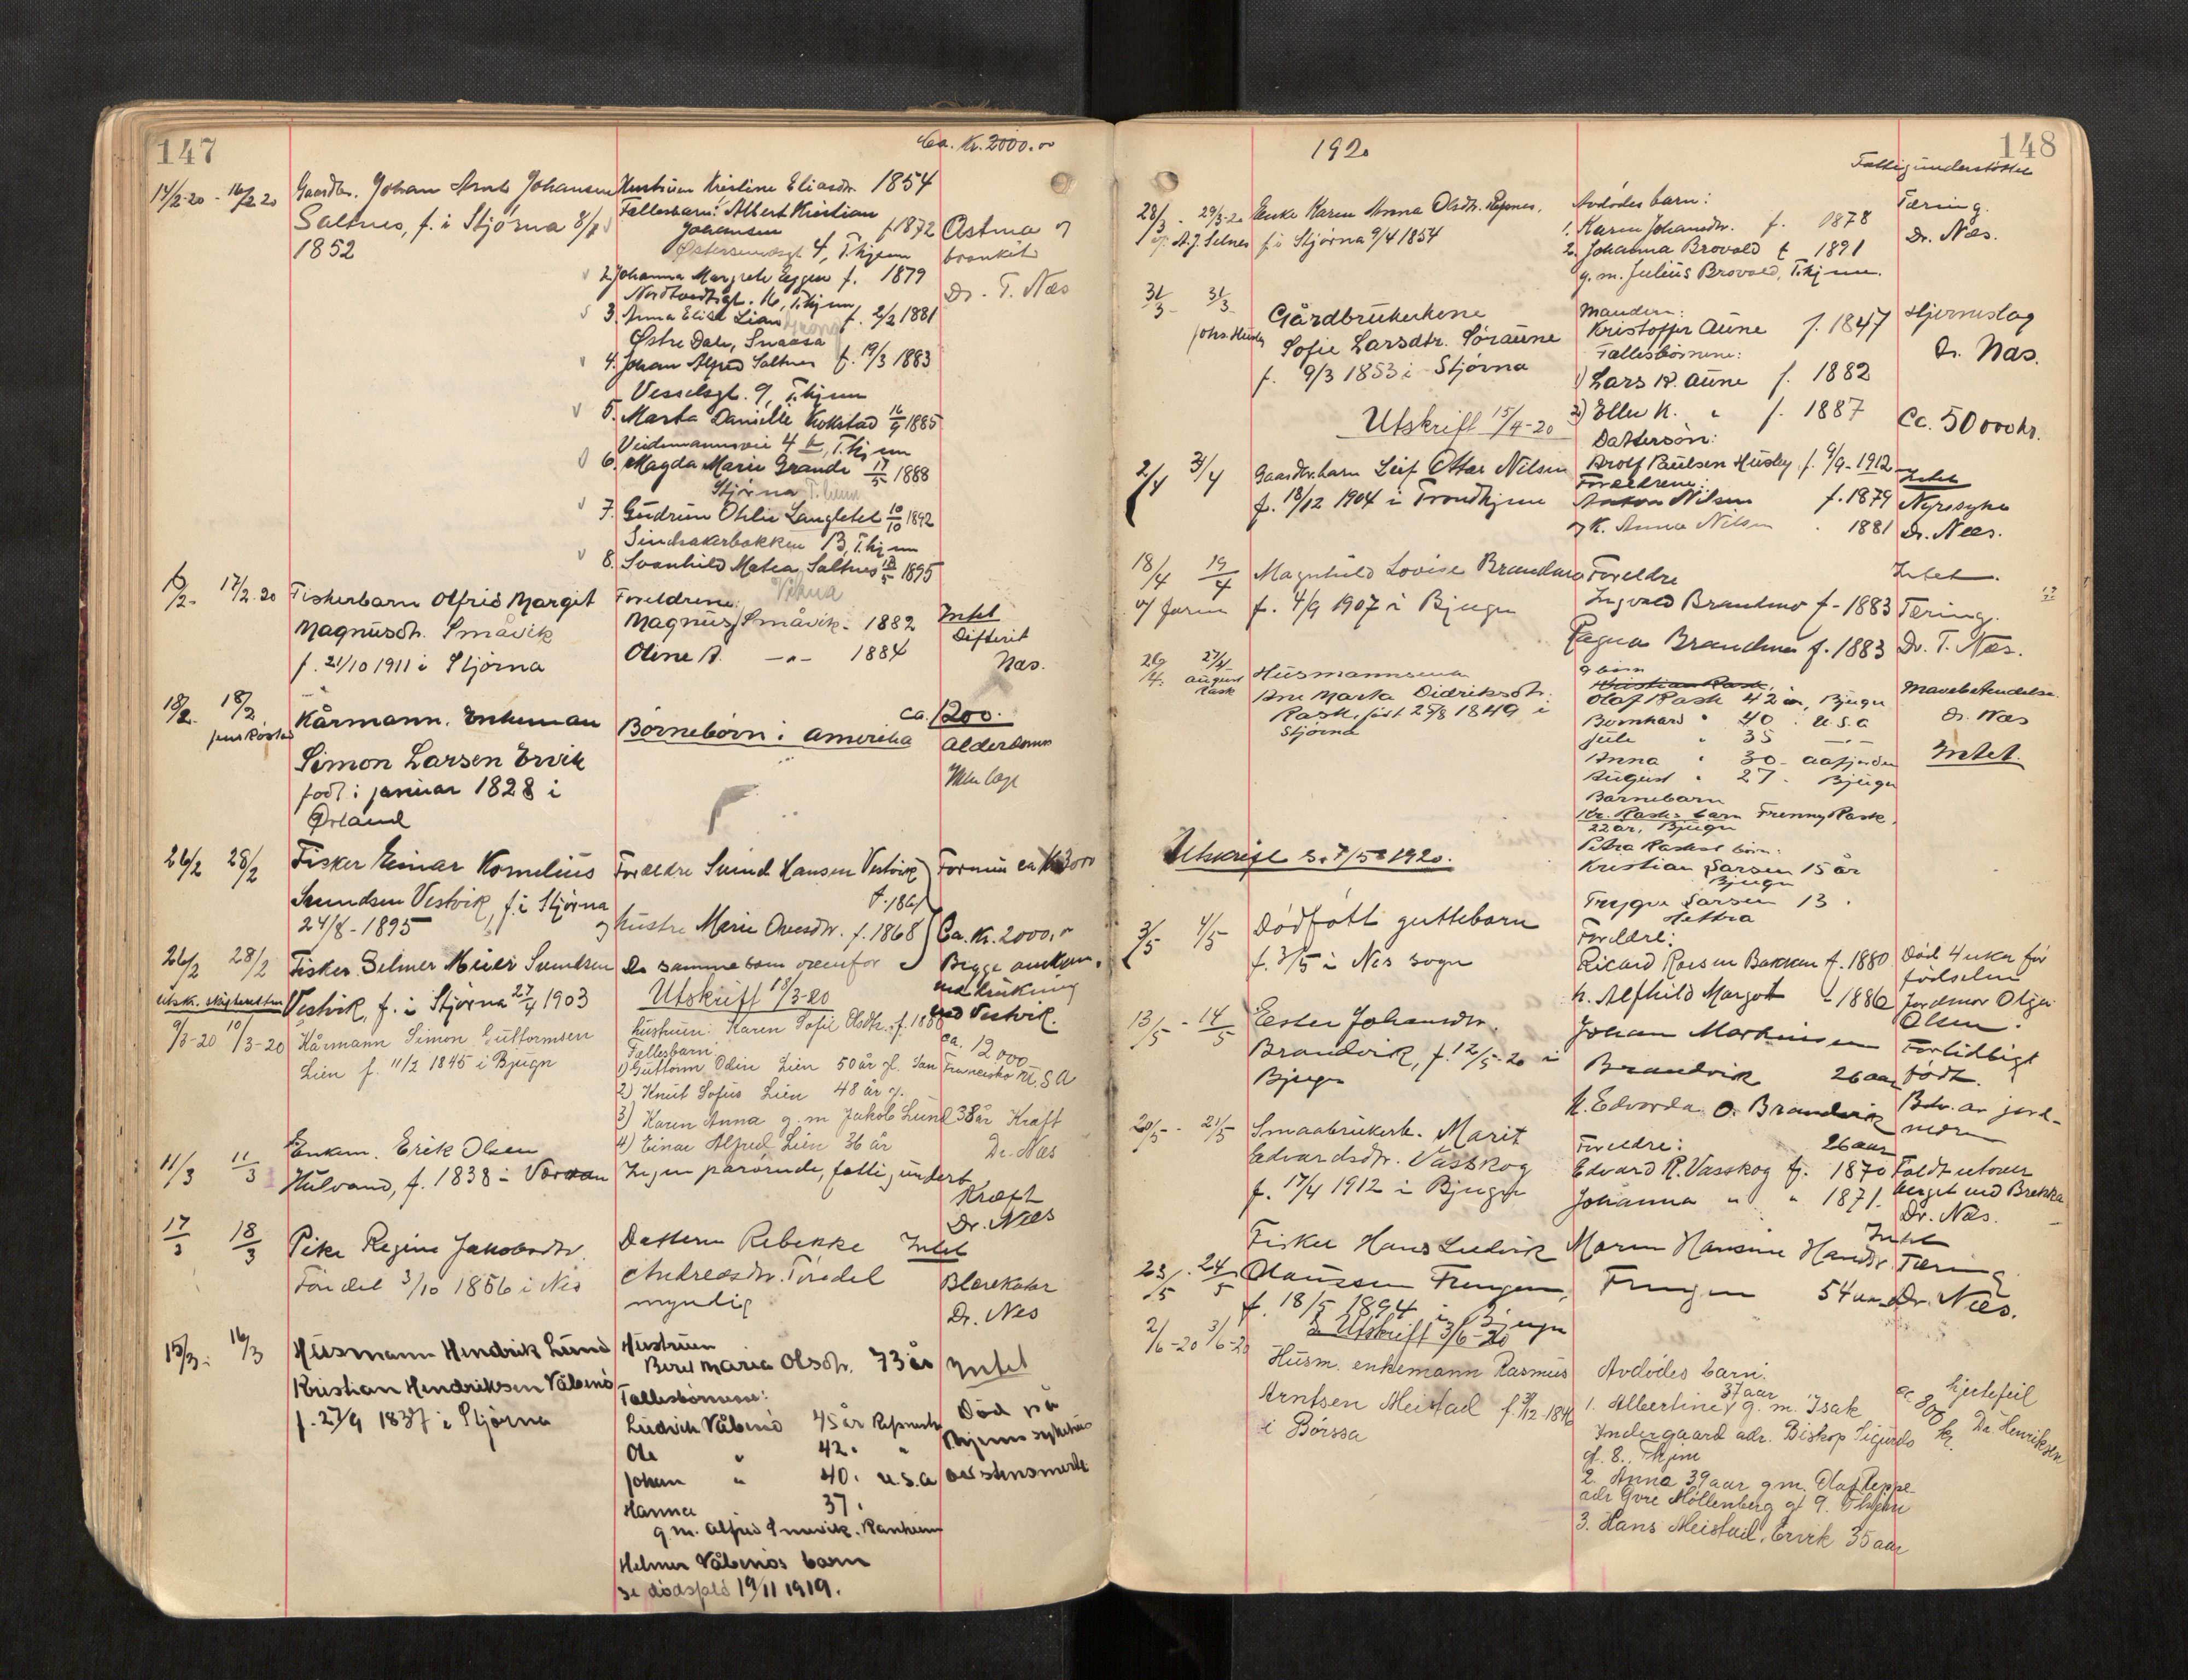 147
Ca. Kr. 2000.00
14/2-20 - 16/2 20 Gaardbr. Johan Arnt Johansen
Saltnes, f. i Stjørna 8/8
1852
Hustruen Kristine Eliasdtr. 1854
Fællesbarn: Albert Kristian
Johansen f 1872
4, T.hjem
2. Johanna Margrete Eggen f. 1879
16, T.hjem
3. Anna Elise Lian f. 2/2 1881
Østre Dale, Snaasa
4. Johan Alfred Saltnes f. 19/3 1883
Vesselsgt. 9, T.hjem
5. Marta Danielle Kokstad 16/9 1885
Veidemannsvei 4 b, T.hjem
6. Magda Marie Grande 17/5 1888
Stjørna
7. Gudrun Othlie Langletet 10/10 1892
Sindsakerbakken 13, T.hjem
8. Svanhild Matea Saltnes 18/5 1895
Astma og
bronkit
Dr. T. Næs
17/2.20 Fiskerbarn Olfrid Margit
Magnusdtr. Småvik
f. 21/10 1911 i Stjørna
Foreldrene:
Magnus Småvik - 1882
Oline A. -"- 1884
Intet
Difterit
Næs.
18/2. 18/2
Kårmann. Enkeman
Simon Larsen Ervik
født i januar 1828 i
Ørland
Børnebørn i Amerika
ca. 1200.
Alderdoms
26/2 28/2 Fisker Einar Kornelius
Svendsen Vestvik, f. i Stjørna
24/8 - 1895
Foreldre Svend Hansen Vestvik
f. 1861
og hustru Marie Ovesdtr. f. 1868
Ca. Kr. 2000,00
26/2 28/2 Fisker Selmer Meier Svendsen
Vestvik, f. i Stjørna 27/4 1903
De samme som ovenfor
Utskrift 18/3-20
Begge omkom.
ved drukning
ved Vestvik.
9/3-20 10/3-20 Kårmann Simon Guttormsen
Lien f. 11/2 1845 i Bjugn
Hustruen: Karen Sofie Olsdtr. f. 1850
Fællesbarn:
ca. 12000
1) Guttorm Odin Lien 50 år gl. San Francisko U.S.A
2) Knut Sofus Lien 48 år g.
3) Karen Anna g. m Jakob Lund 38 år
4) Einar Alfred Lien 36 år
Kræft
Dr. Næs
11/3 11/3
Enkem. Erik Olsen
Hulvand, f. 1838 i
Ingen pårørende, fattigunderst.
Kræft
Dr. Næs
17/3 18/3 Pike Regine Jakobsdtr.
Tøndel 3/10 1856 i Nes
Datteren Rebekke
Andreasdtr. Tøndel
myndig
Intet
Blærekatar
Dr. Næs
15/3. 16/3 Husmann Hendrik Lund
Kristian Hendriksen Våbenø
f. 27/9 1837 i Stjørna
Hustruen
Maria Olsdtr. 73 år
Fællesbørnene:
Ludvik Våbenø 45 år
Ole " 42. "
Johan " 40. U.S.A
Hanna 37.
g m. Alfred Ranheim
Helmer Våbenøs barn
se dødsfald 19/11 1919.
Intet
Død på
148
1920
Fattigunderstøttet
28/3 - 29/3-20 Enke Karen Anna Olsdtr.
v/ A.J. Selnes f. i Stjørna 9/4 1854
Avdødes barn:
1. Karen Johansdtr. f. 1878
2. Johanna Brovold f 1891
g. m. Julius Brovold, T.hjem.
Tæring.
Dr. Næs.
31/3 31/3
Gårdbrukerkone
Sofie Larsdtr. Søraune
f. 9/3 1853 i Stjørna
Utskrift 15/4-20
Manden:
Kristoffer Aune f. 1847
Fællesbørnene:
1) Lars K. Aune f. 1882
2) Ellen K. " f. 1887
Dattersøn:
Brolf Paulsen Husby f. 9/9-1912
Hjerneslag
Dr. Næs.
Cc. 50000 kr.
2/4 3/4 Gaardbr.barn Leif Ottar Nilsen
f. 18/12 1904 i Trondhjem
Foreldrene:
Anton Nilsen f. 1879
og K. Anna Nilsen . 1881
Intet
Nyresyke
Dr. Næs.
18/4 19/4 Magnhild Lovise Brandmo
f. 4/9 1907 i Bjugn
Foreldre
Ingvald Brandmo f - 1883
Ragna Brandmo f. 1883
Intet.
Tæring.
Dr. T. Næs.
26/4. 27/4
August
Rask
Husmannsenke
Ane Marta Didriksdtr.
Rask, født 25/8 1849 i
Stjørna
Olaf Rask 42 år, Bjugn
Bornhard " 40 . U.S.A
Jule " 35 -"-
Anna " 30 - Aafjorden
August " 27. Bjugn
Barnebarn
Kr. Rasks barn Frenny Rask,
22 år, Bjugn
Petra Rasks børn:
Kristian Larsen 15 år
Bjugn
Trygve Larsen 13.
Mavebetendelse.
Dr. Næs
Intet.
Utskrift s.d 7/5 1920.
3/5 4/5 Dødfødt guttebarn
f. 3/5 i Nes sogn
Foreldre:
Ricard Roesen Bakken f. 1880
h. Alfhild Margot " 1886
Død 4 uker før
fødselen
Jordmor Olga
Olsen.
13/5 - 14/5 Ester Johansdtr.
Brandvik, f. 12/5-20 i
Bjugn
Johan Martinsen
Brandvik 26 aar
h. Edvarda O. Brandvik
26 aar
Fortidligt
født.
Bdr. av jord-
moren
20/5 - 21/5 Smaabrukerb. Marit
Edvardsdtr. Vasskog
f. 17/4 1912 i Bjugn
Foreldre:
Edvard R. Vasskog f. 1870
Johanna " " 1871.
Faldt utover
berget ved Brekka
Dr. Næs.
Intet
23/5. 24/5
Fisker Hans Ludvik
Olaussen Frengen,
f. 18/5 1894 i Bjugn
2 Utskrift 3/6-20
Maren Hansine Hansdtr.
Frengen 54 aar
Tæring
Dr. Næs.
2/6-20 3/6-20
Husm. enkemann Rasmus
Arntsen Meistad f. 31/12-1846
i Børssa
Avdødes barn:
37 aar
1. Albertine g. m. Isak
Indergaard adr. Biskop Sigurds
gt. 8. T.hjem
2. Anna 39 aar gm. Olaf Reppe
adr Øvre Møllenberg gt 9. T.hjem
3. Hans Meistad, Ervik 35 aar
cc 300 kr.
hjertefeil
Dr. Henriksen